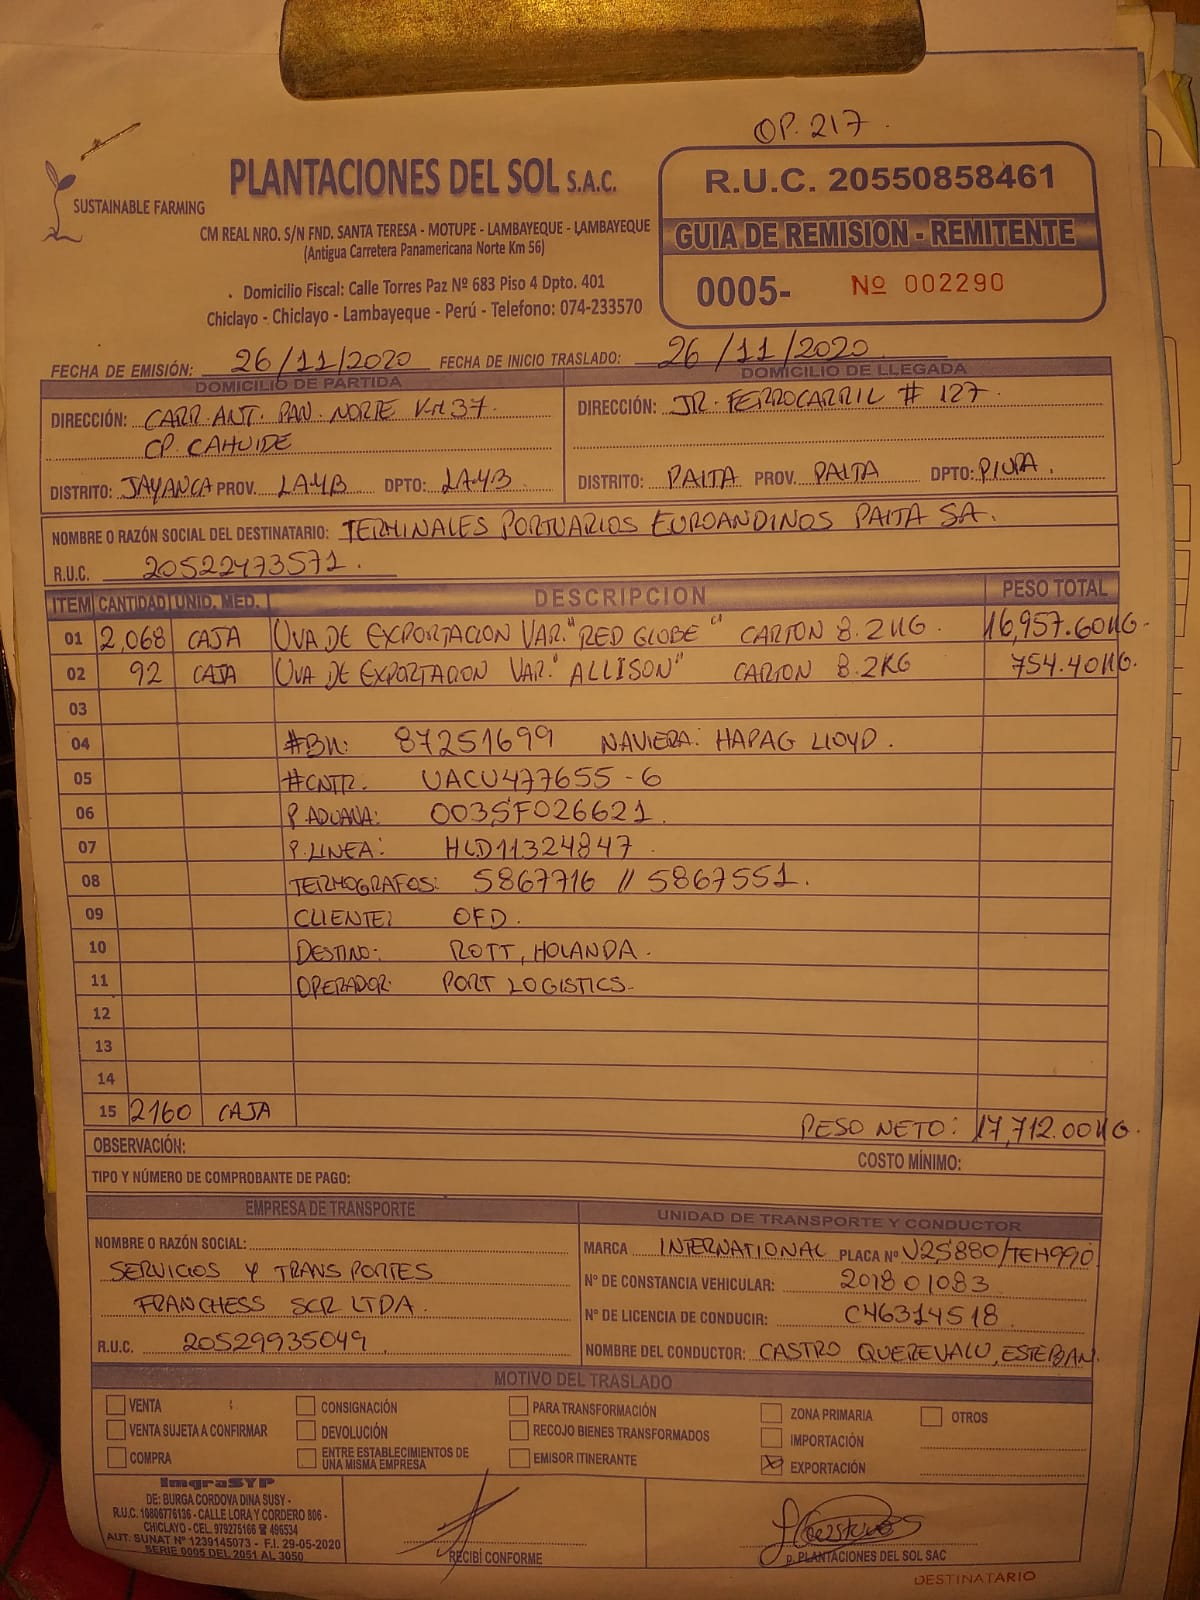 OP. 217.
PLANTACIONES DEL SOL S.A.C.
SUSTAINABLE FARMING
CM REAL NRO. S/N FND. SANTA TERESA - MOTUPE - LAMBAYEQUE - LAMBAYEQUE
(Antigua Carretera Panamericana Norte Km 56)
. Domicilio Fiscal: Calle Torres Paz Nº 683 Piso 4 Dpto. 401
Chiclayo - Chiclayo - Lambayeque - Perú - Telefono: 074-233570
R.U.C. 20550858461
GUIA DE REMISION - REMITENTE
0005- Nº 002290
FECHA DE EMISIÓN: 26/11/2020 FECHA DE INICIO TRASLADO: 26/11/2020
DOMICILIO DE PARTIDA
DIRECCIÓN: CARR. ANT. PAN. NORTE Km 37.
CP. CAHUIDE
DISTRITO: JAYANCA PROV. LAMB DPTO: LAMB.
DOMICILIO DE LLEGADA
DIRECCIÓN: JR. FERROCARRIL # 127.
DISTRITO: PAITA PROV. PAITA DPTO: PIURA.
NOMBRE O RAZÓN SOCIAL DEL DESTINATARIO: TERMINALES PORTUARIOS EUROANDINOS PAITA SA.
R.U.C. 20522473571.
ITEM CANTIDAD UNID. MED. DESCRIPCION PESO TOTAL
01 2,068 CAJA UVA DE EXPORTACION VAR. "RED GLOBE" CARTON 8.2KG. 16,957.60KG.
02 92 CAJA UVA DE EXPORTACION VAR. "ALLISON" CARTON 8.2KG 754.40KG.
03
04 #BK: 87251699 NAVIERA: HAPAG LLOYD.
05 #CNTR. UACU477655-6
06 P. ADUANA: 003SF026621.
07 P. LINEA: HLD11324847.
08 TERMOGRAFOS: 5867716 // 5867551.
09 CLIENTE: OFD.
10 DESTINO: ROTT, HOLANDA.
11 OPERADOR: PORT LOGISTICS.
12
13
14
15 2160 CAJA PESO NETO: 17,712.00KG.
OBSERVACIÓN:
COSTO MÍNIMO:
TIPO Y NÚMERO DE COMPROBANTE DE PAGO:
EMPRESA DE TRANSPORTE
NOMBRE O RAZÓN SOCIAL:
SERVICIOS Y TRANSPORTES
FRANCHESS SCR LTDA.
R.U.C. 20529935049
UNIDAD DE TRANSPORTE Y CONDUCTOR
MARCA INTERNATIONAL PLACA Nº V2S880/TEH990
Nº DE CONSTANCIA VEHICULAR: 201801083
Nº DE LICENCIA DE CONDUCIR: C46314518
NOMBRE DEL CONDUCTOR: CASTRO QUEREVALU, ESTEBAN.
MOTIVO DEL TRASLADO
VENTA CONSIGNACIÓN PARA TRANSFORMACIÓN ZONA PRIMARIA OTROS
VENTA SUJETA A CONFIRMAR DEVOLUCIÓN RECOJO BIENES TRANSFORMADOS IMPORTACIÓN
COMPRA ENTRE ESTABLECIMIENTOS DE UNA MISMA EMPRESA EMISOR ITINERANTE EXPORTACIÓN
ImgraSYP
DE: BURGA CORDOVA DINA SUSY -
R.U.C. 10806776136 - CALLE LORA Y CORDERO 806 -
CHICLAYO - CEL. 979275166 ☎ 496534
AUT. SUNAT Nº 1239145073 - F.I. 29-05-2020
SERIE 0005 DEL 2051 AL 3050
RECIBÍ CONFORME
p. PLANTACIONES DEL SOL SAC
DESTINATARIO